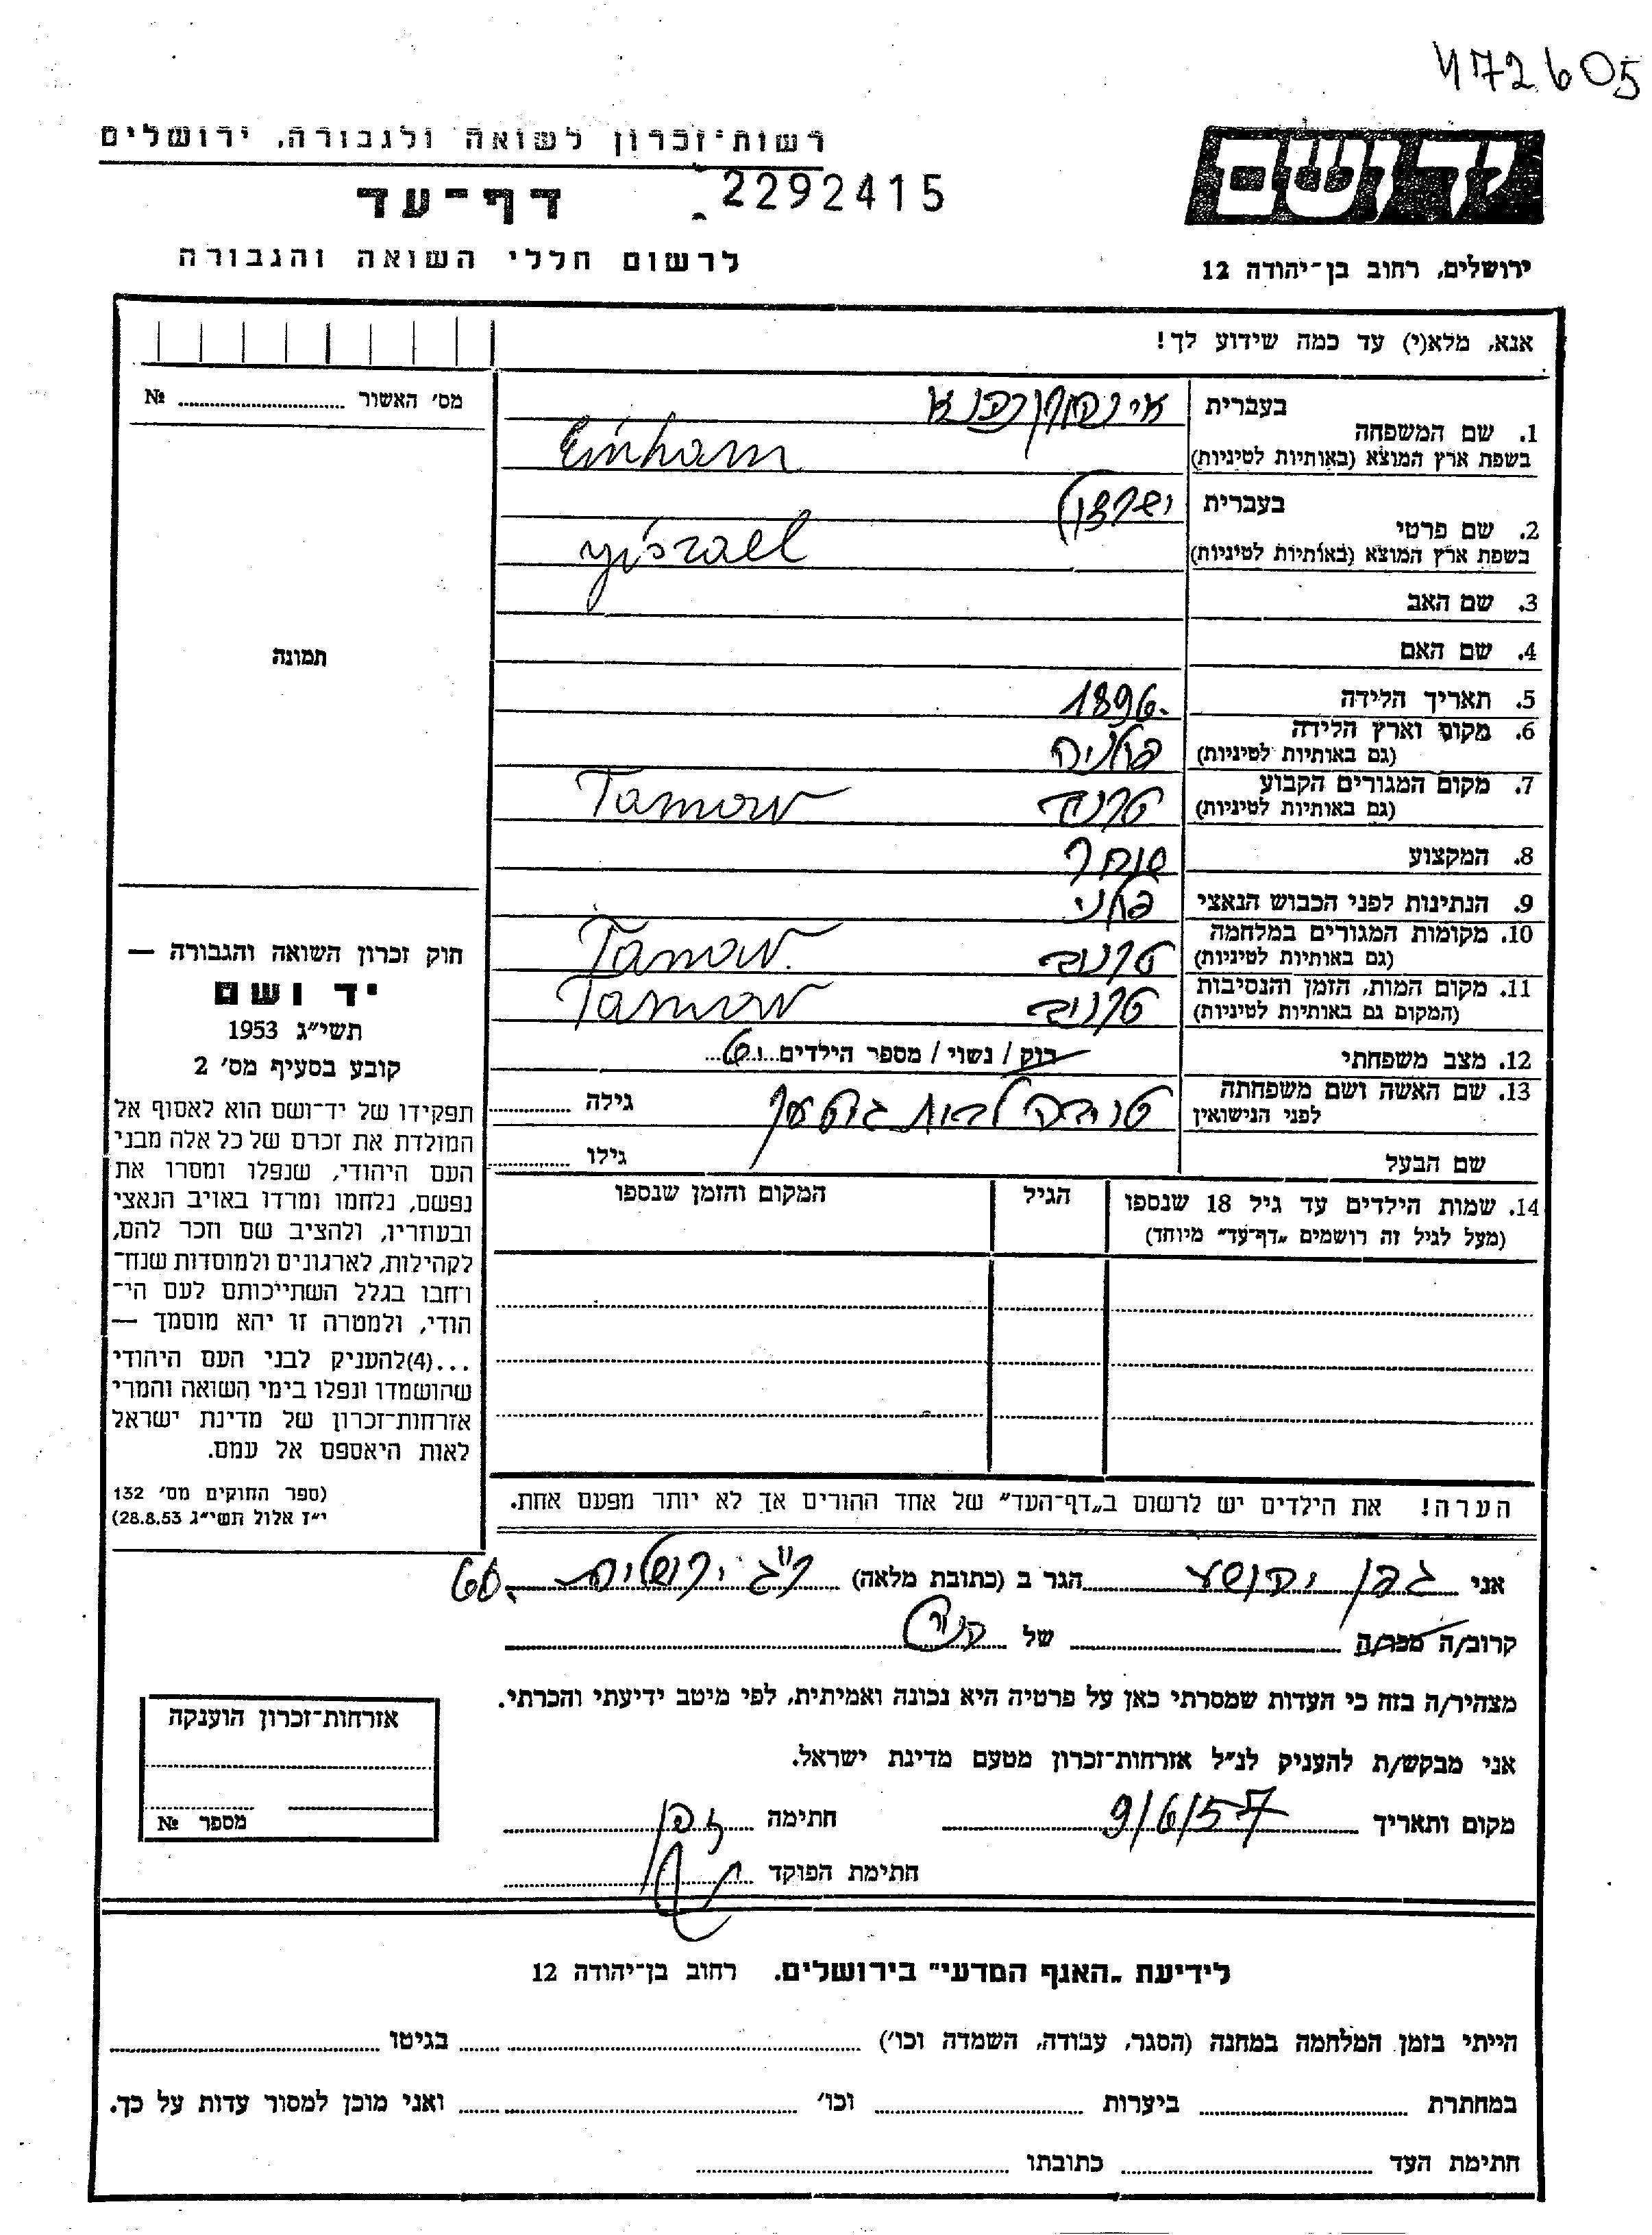 472605
רשות־זכרון לשואה ולגבורה, ירושלים
2292415
דף־עד
לרשום חללי השואה והגבורה
ידושם
ירושלים, רחוב בן־יהודה 12
אנא, מלא(י) עד כמה שידוע לך!
מס׳ האשור № 
1. שם המשפחה
בעברית
בשפת ארץ המוצא (באותיות לטיניות) Einhorn
2. שם פרטי
בעברית ישראל
בשפת ארץ המוצא (באותיות לטיניות) Yisrael
3. שם האב
4. שם האם
תמונה
5. תאריך הלידה 1896.
6. מקום וארץ הלידה פולניה
(גם באותיות לטיניות)
7. מקום המגורים הקבוע טרנוב Tarnow
(גם באותיות לטיניות)
8. המקצוע סוחר
9. הנתינות לפני הכבוש הנאצי פולני
10. מקומות המגורים במלחמה טרנוב Tarnow.
(גם באותיות לטיניות)
11. מקום המות, הזמן והנסיבות טרנוב Tarnow
(המקום גם באותיות לטיניות)
12. מצב משפחתי רווק / נשוי / מספר הילדים 6
13. שם האשה ושם משפחתה
לפני הנישואין
טובה לבית גילה
שם הבעל גילו
14. שמות הילדים עד גיל 18 שנספו הגיל המקום והזמן שנספו
(מעל לגיל זה רושמים „דף־עד״ מיוחד)
הערה! את הילדים יש לרשום ב„דף־העד״ של אחד ההורים אך לא יותר מפעם אחת.
חוק זכרון השואה והגבורה —
יד ושם
תשי״ג 1953
קובע בסעיף מס׳ 2
תפקידו של יד־ושם הוא לאסוף אל
המולדת את זכרם של כל אלה מבני
העם היהודי, שנפלו ומסרו את
נפשם, נלחמו ומרדו באויב הנאצי
ובעוזריו, ולהציב שם וזכר להם,
לקהילות, לארגונים ולמוסדות שנח־
רבו בגלל השתייכותם לעם הי־
הודי, ולמטרה זו יהא מוסמך —
...(4)להעניק לבני העם היהודי
שהושמדו ונפלו בימי השואה והמרי
אזרחות־זכרון של מדינת ישראל
לאות היאספם אל עמם.
(ספר החוקים מס׳ 132
י״ז אלול תשי״ג 28.8.53)
אני גפן יהושע הגר ב (כתובת מלאה) ר״ג ירושלים 66.
קרוב/ה מכר/ה של הנ״ל
מצהיר/ה בזה כי העדות שמסרתי כאן על פרטיה היא נכונה ואמיתית, לפי מיטב ידיעתי והכרתי.
אני מבקש/ת להעניק לנ״ל אזרחות־זכרון מטעם מדינת ישראל.
מקום ותאריך 9/6/57 חתימה גפן
חתימת הפוקד
אזרחות־זכרון הוענקה
מספר №
לידיעת „האגף המדעי״ בירושלים. רחוב בן־יהודה 12
הייתי בזמן המלחמה במחנה (הסגר, עבודה, השמדה וכו׳) בגיטו
במחתרת ביערות וכו׳ ואני מוכן למסור עדות על כך.
חתימת העד כתובתו